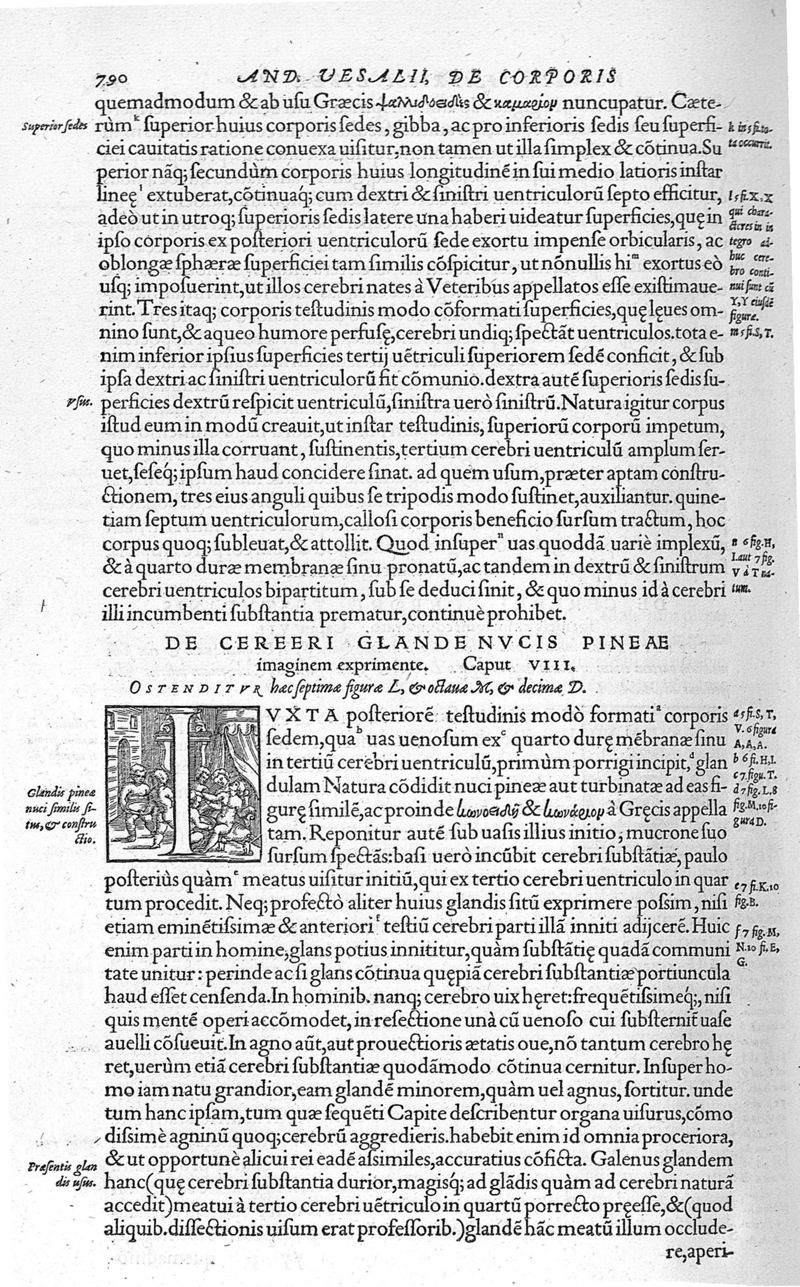 790 AND. VESALII, DE CORPORIS
quemadmodum & ab usu Græcis ψαλλιδοειδὲς & καμάριον nuncupatur. Cæte-
Superior sedes
rùmᵏ superior huius corporis sedes, gibba, ac pro inferioris sedis seu superfi-
k in 5 fi. to-
ta occurrit.
ciei cauitatis ratione conuexa uisitur, non tamen ut illa simplex & cõtinua. Su
perior nãq; secundùm corporis huius longitudinẽ in sui medio latioris instar
lineęˡ extuberat, cõtinuaq́; cum dextri & sinistri uentriculorũ septo efficitur,
l 5 fi. X, X
qui chara-
cteres in in
tegro ad-
huc cere-
bro conti-
nui sunt cũ
Y, Y eiusdẽ
figuræ.
adeò ut in utroq; superioris sedis latere una haberi uideatur superficies, quę in
ipso corporis ex posteriori uentriculorũ sede exortu impense orbicularis, ac
oblongæ sphæræ superficiei tam similis cõspicitur, ut nõnullis hiᵐ exortus eò
usq; imposuerint, ut illos cerebri nates à Veteribus appellatos esse existimaue-
rint. Tres itaq; corporis testudinis modo cõformati superficies, quę lęues om-
nino sunt, & aqueo humore perfusę, cerebri undiq; spectãt uentriculos. tota e-
m 5 fi. S, T.
nim inferior ipsius superficies tertij uẽtriculi superiorem sedẽ conficit, & sub
ipsa dextri ac sinistri uentriculorũ fit cõmunio. dextra autẽ superioris sedis su-
Vsus.
perficies dextrũ respicit uentriculũ, sinistra uerò sinistrũ. Natura igitur corpus
istud eum in modũ creauit, ut instar testudinis, superiorũ corporũ impetum,
quo minus illa corruant, sustinentis, tertium cerebri uentriculũ amplum ser-
uet, seseq́; ipsum haud concidere sinat. ad quem usum, præter aptam constru-
ctionem, tres eius anguli quibus se tripodis modo sustinet, auxiliantur. quine-
tiam septum uentriculorum, callosi corporis beneficio sursum tractum, hoc
corpus quoq; subleuat, & attollit. Quod insuperⁿ uas quoddã uariè implexũ,
n 6 fig. H,
L aut 7 fig.
V à T na-
tum.
& à quarto duræ membranæ sinu pronatũ, ac tandem in dextrũ & sinistrum
cerebri uentriculos bipartitum, sub se deduci sinit, & quo minus id à cerebri
illi incumbenti substantia prematur, continuè prohibet.
DE CEREERI GLANDE NVCIS PINEAE
imaginem exprimente. Caput VIII.
OSTENDITVR hæc septimæ figuræ L, & octauæ M, & decimæ D.
IVXTA posteriorẽ testudinis modò formatiᵃ corporis
a 5 fi. S, T,
V. 6 figura
A, A, A.
sedem, quaᵇ uas uenosum exᶜ quarto durę mẽbranæ sinu
in tertiũ cerebri uentriculũ, primùm porrigi incipit,ᵈ glan
b 6 fi. H, I.
c 7. figu. T.
d 7 fig. L. 8
fig. M. 10 fi-
gura D.
dulam Natura cõdidit nuci pineæ aut turbinatæ ad eas fi-
Glandis pineæ
nuci similis si-
tus, & constru
ctio.
gurę similẽ, ac proinde κωνοειδὴ & κωνάριον à Gręcis appella
tam. Reponitur autẽ sub uasis illius initio, mucrone suo
sursum spectãs: basi uerò incũbit cerebri substãtiæ, paulo
posteriùs quàmᵉ meatus uisitur initiũ, qui ex tertio cerebri uentriculo in quar
e 7 fi. K. 10
fig. B.
tum procedit. Neq; profectò aliter huius glandis sitũ exprimere possim, nisi
etiam eminẽtissimæ & anterioriᶠ testiũ cerebri parti illã inniti adijcerẽ. Huic
f 7 fig. M,
N. 10 fi. E,
G.
enim parti in homine, glans potius innititur, quàm substãtię quadã communi
tate unitur: perinde ac si glans cõtinua quępiã cerebri substantiæ portiuncula
haud esset censenda. In hominib. nanq; cerebro uix hęret: frequẽtissimeq́;, nisi
quis mentẽ operi accõmodet, in resectione unà cũ uenoso cui substernit̃ uase
auelli cõsueuit. In agno aũt, aut prouectioris ætatis oue, nõ tantum cerebro hę
ret, uerùm etiã cerebri substantiæ quodãmodo cõtinua cernitur. Insuper ho-
mo iam natu grandior, eam glandẽ minorem, quàm uel agnus, sortitur. unde
tum hanc ipsam, tum quæ sequẽti Capite describentur organa uisurus, cõmo
dissimè agninũ quoq; cerebrũ aggredieris. habebit enim id omnia proceriora,
Præsentis glan
dis usus.
& ut opportunè alicui rei eadẽ assimiles, accuratius cõficta. Galenus glandem
hanc (quę cerebri substantia durior, magisq́; ad glãdis quàm ad cerebri naturã
accedit) meatui à tertio cerebri uẽtriculo in quartũ porrecto pręesse, & (quod
aliquib. dissectionis uisum erat professorib.) glandẽ hãc meatũ illum occlude-
re, aperi-